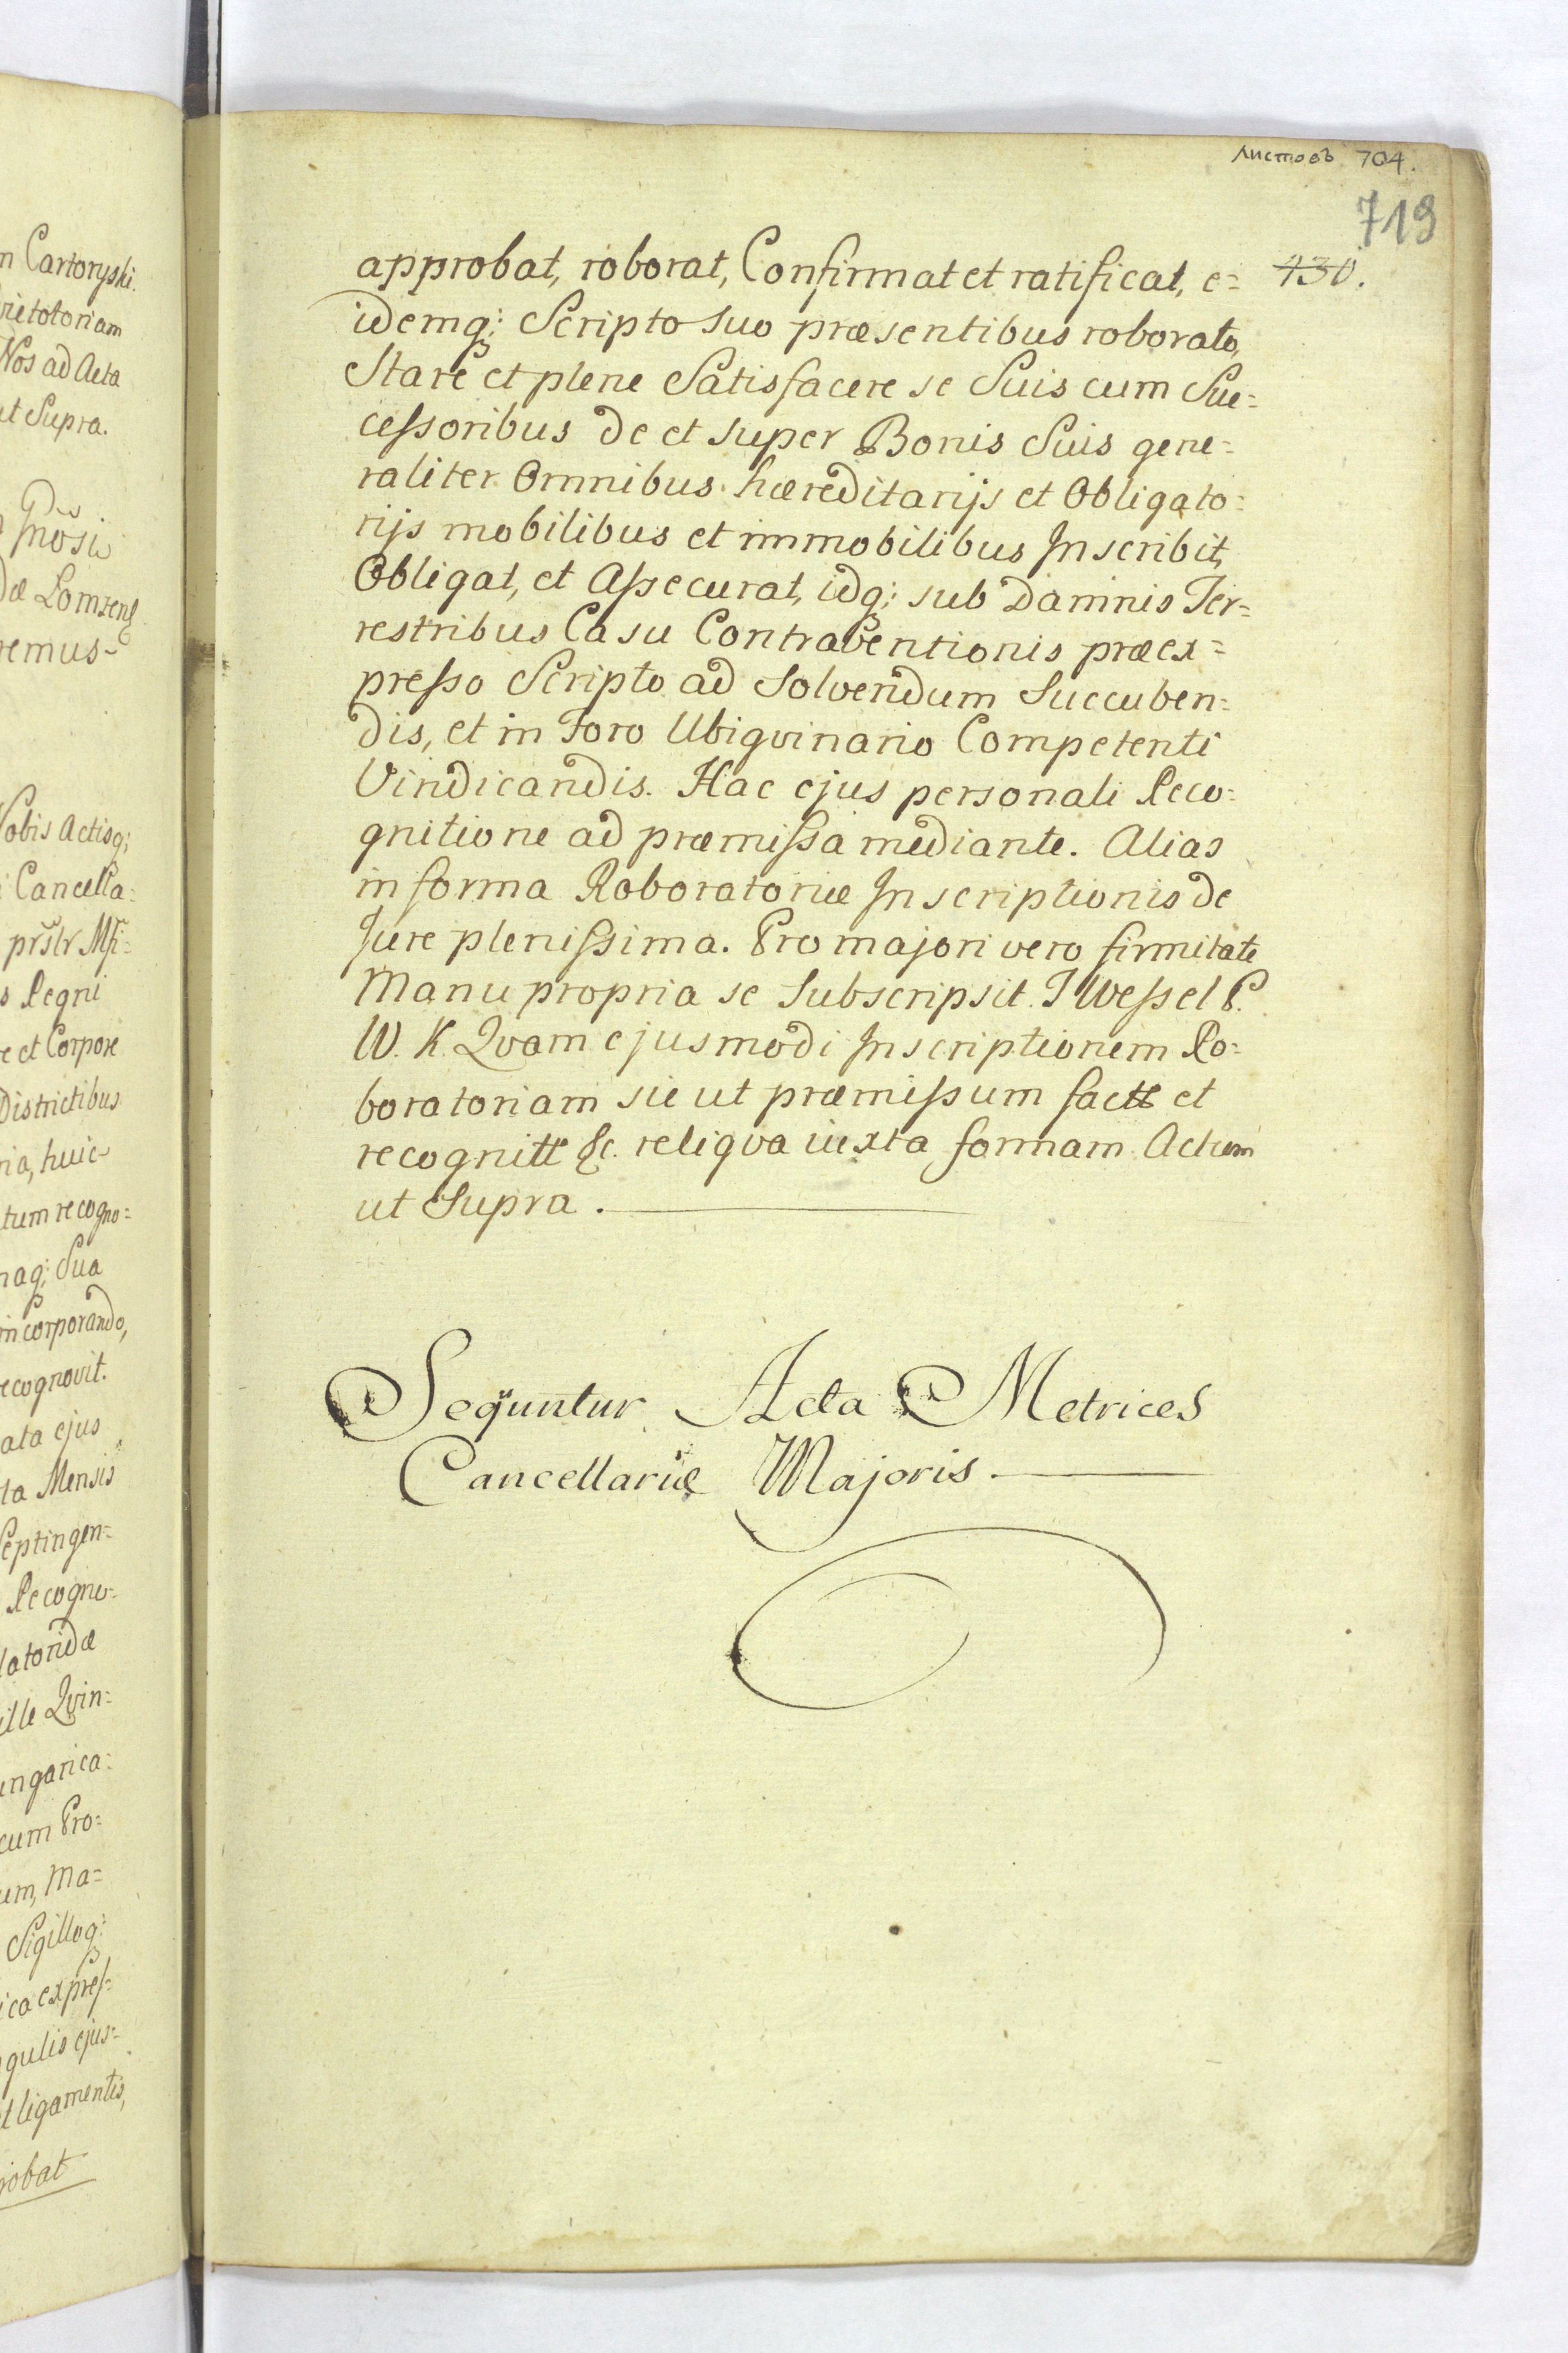 n Cartoryski.
rietotoriam
Nos ad Acta
ut Supra.
Gnosi
dæ Lomzens
remus
Vobis Actisq;
i Cancella=
s Regni
re et Corpore
Districtibus
ria, huic
tum recogno=
naq; Sua
incorporando,
recognovit.
ata ejus
ta Mensis
Septingen=
Recogno=
latoridæ
ille Qvin=
ungarica=
cum Pro=
um, Ma=
Sigilloq;
ica expres=
ngulis ejus=
et ligamentis,
robat
листовъ 704.
719
430.
approbat, roborat, Confirmat et ratificat, e=
idemq; Scripto suo præsentibus roborato,
Stare et plene Satisfacere se Suis cum Suc=
cessoribus de et super Bonis Suis gene=
raliter Omnibus hæreditarijs et Obligato=
rijs mobilibus et immobilibus Inscribit,
Obligat, et Assecurat, idq; sub Damnis Ter=
restribus Casu Contraventionis præex=
presso Scripto ad Solvendum Succuben=
dis, et in Foro Ubiqvinario Competenti
Vindicandis. Hac ejus personali Reco=
gnitione ad præmissa mediante. Alias
in forma Roboratoriæ Inscriptionis de
Jure plenissima. Pro majori vero firmitate
Manu propria se Subscripsit. T Wessel P.
W. K. Qvam ejusmodi Inscriptionem Ro=
boratoriam sic ut præmissum factt et
recognitt &c. reliqva iuxta formam Actum
ut Supra.
Seqüntur Acta Metrices
Cancellariæ Majoris.